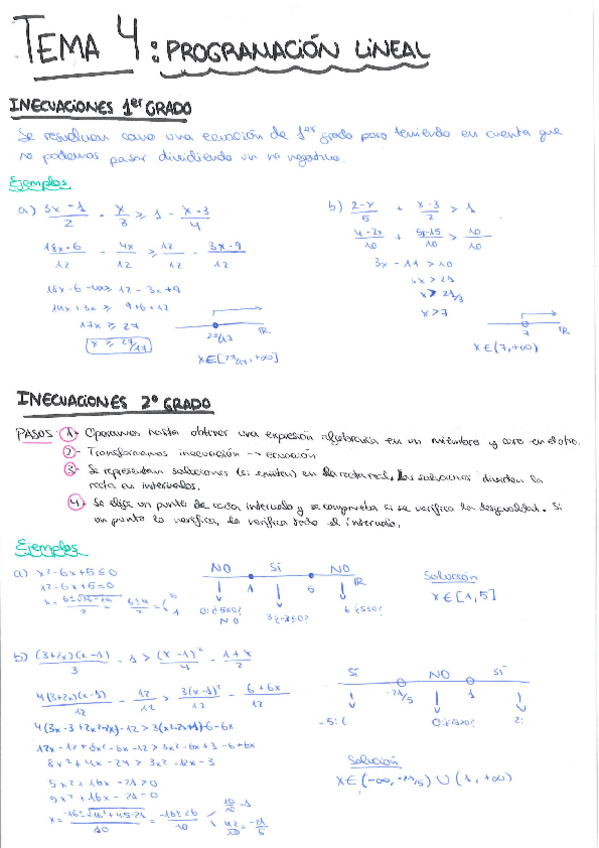 TEMA 4: PROGRAMACIÓN LINEAL
INECUACIONES 1er GRADO
Se resuelven como una ecuación de 1er grado pero teniendo en cuenta que
no podemos pasar dividiendo un no negativo.
Ejemplos
a) 3x-1/2 - x/3 ≥ 1 - x+3/4
18x-6/12 - 4x/12 ≥ 12/12 - 3x-9/12
18x-6-4x ≥ 12-3x+9
14x+3x ≥ 9+6+12
17x ≥ 27
x ≥ 27/17
27/17 R
x∈[27/17,+∞)
b) 2-x/5 + x-3/2 > 1
4-2x/10 + 5x-15/10 > 10/10
3x-11>10
3x > 21
x > 21/3
x>7
7 R
x∈(7,+∞)
INECUACIONES 2º GRADO
PASOS: 1- Operamos hasta obtener una expresión algebraica en un miembro y cero en el otro.
2- Transformamos inecuación → ecuación
3- Se representan soluciones (si existen) en la recta real, las soluciones dividen la
recta en intervalos.
4- Se elije un punto de cada intervalo y se comprueba si se verifica la desigualdad. Si
un punto lo verifica, lo verifica todo el intervalo.
Ejemplos
a) x²-6x+5≤0
x²-6x+5=0
NO SÍ NO
1 5 R
0:¿5≤0?
NO
Solución
x∈[1,5]
b) (3+2x)(x-1)/3 - 1 > (x-1)²/4 - 1+x/2
4(3+2x)(x-1)/12 - 12/12 > 3(x-1)²/12 - 6+6x/12
8x²+4x-24 > 3x²-12x-3
5x²+16x-21>0
5x²+16x-21=0
SÍ NO SÍ
-21/5 1
-5:
2:
Solución
x∈(-∞,-21/5) ∪ (1,+∞)